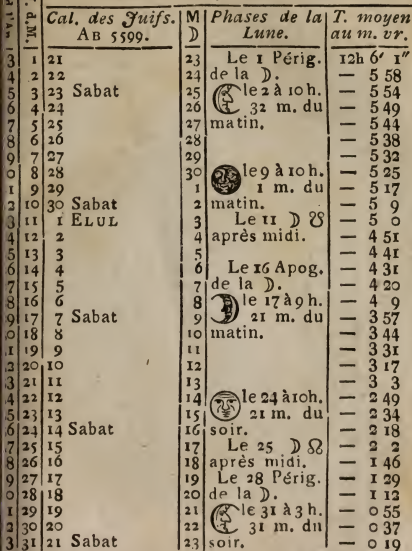 d.M. Cal. des Juifs. M Phases de la T. moyen
AB 5599. ☽ Lune. au m. vr.
3 1 21 23 Le 1 Périg. 12h 6′ 1″
4 2 22 24 de la ☽. — 5 58
5 3 23 Sabat 25 le 2 à 10h. — 5 54
6 4 24 26 32 m. du — 5 49
7 5 25 27 matin. — 5 44
8 6 26 28 — 5 38
9 7 27 29 — 5 32
0 8 28 30 le 9 à 10h. — 5 25
1 9 29 1 1 m. du — 5 17
2 10 30 Sabat 2 matin. — 5 9
3 11 1 ELUL 3 Le 11 ☽ ☋ — 5 0
4 12 2 4 après midi. — 4 51
5 13 3 5 — 4 41
6 14 4 6 Le 16 Apog. — 4 31
7 15 5 7 de la ☽. — 4 20
8 16 6 8 le 17 à 9 h. — 4 9
9 17 7 Sabat 9 21 m. du — 3 57
0 18 8 10 matin. — 3 44
1 19 9 11 — 3 31
2 20 10 12 — 3 17
3 21 11 13 — 3 3
4 22 12 14 le 24 à 10h. — 2 49
5 23 13 15 21 m. du — 2 34
6 24 14 Sabat 16 soir. — 2 18
7 25 15 17 Le 25 ☽ ☊ — 2 2
8 26 16 18 après midi. — 1 46
9 27 17 19 Le 28 Périg. — 1 29
0 28 18 20 de la ☽. — 1 12
1 29 19 21 le 31 à 3 h. — 0 55
2 30 20 22 31 m. du — 0 37
3 31 21 Sabat 23 soir. — 0 19